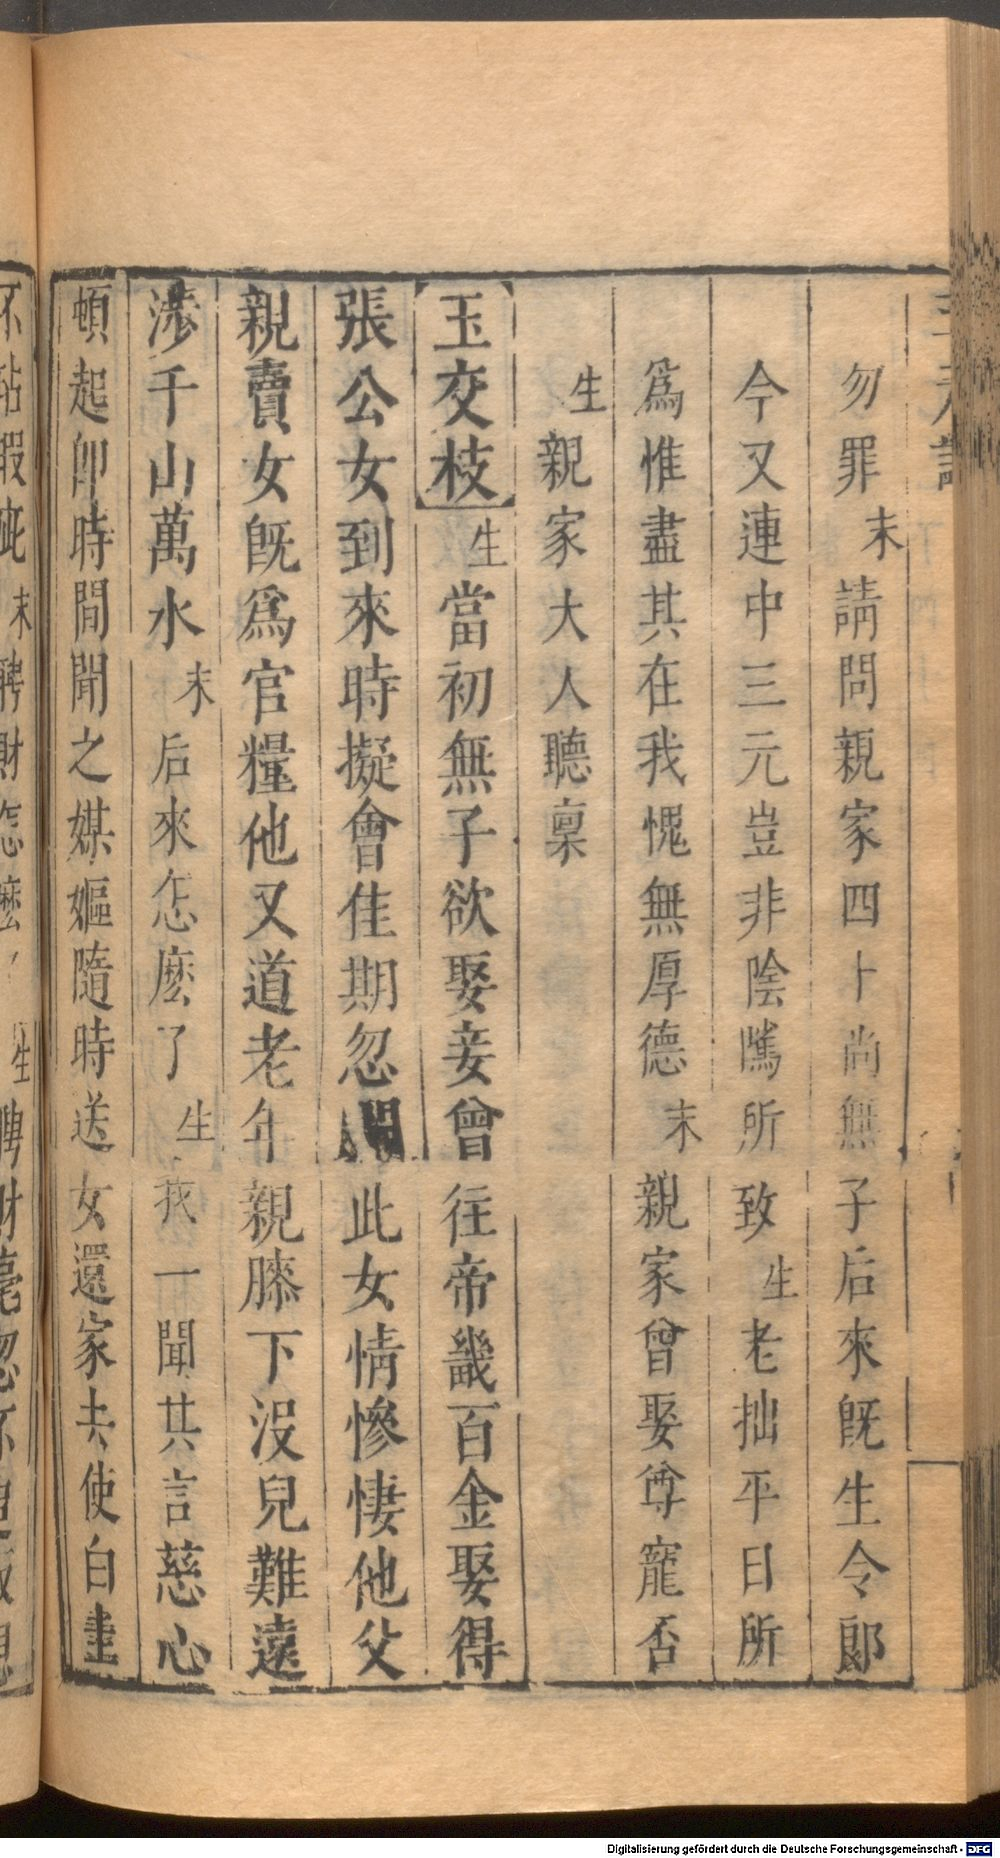 勿罪末請問親家四十尚無子后來既生令郎
今又連中三元豈非陰騭所致生老拙平日所
爲惟盡其在我愧無厚德末親家曾娶尊寵否
生親家大人聽稟
【玉交枝】生當初無子欲娶妾曾往帝畿百金娶得
張公女到來時擬會佳期忽此女情慘悽他父
親賣女旣爲官糧他又道老年親膝下沒兒難遠
涉千山萬水末后來怎麽了生我一聞其言慈心
頓起卽時間聞之媒嫗隨時送女還家去使白
不玷瑕疵末聘財怎麽了生聘財毫忽不
Digitalisierung gefördert durch die Deutsche Forschungsgemeinschaft - DFG